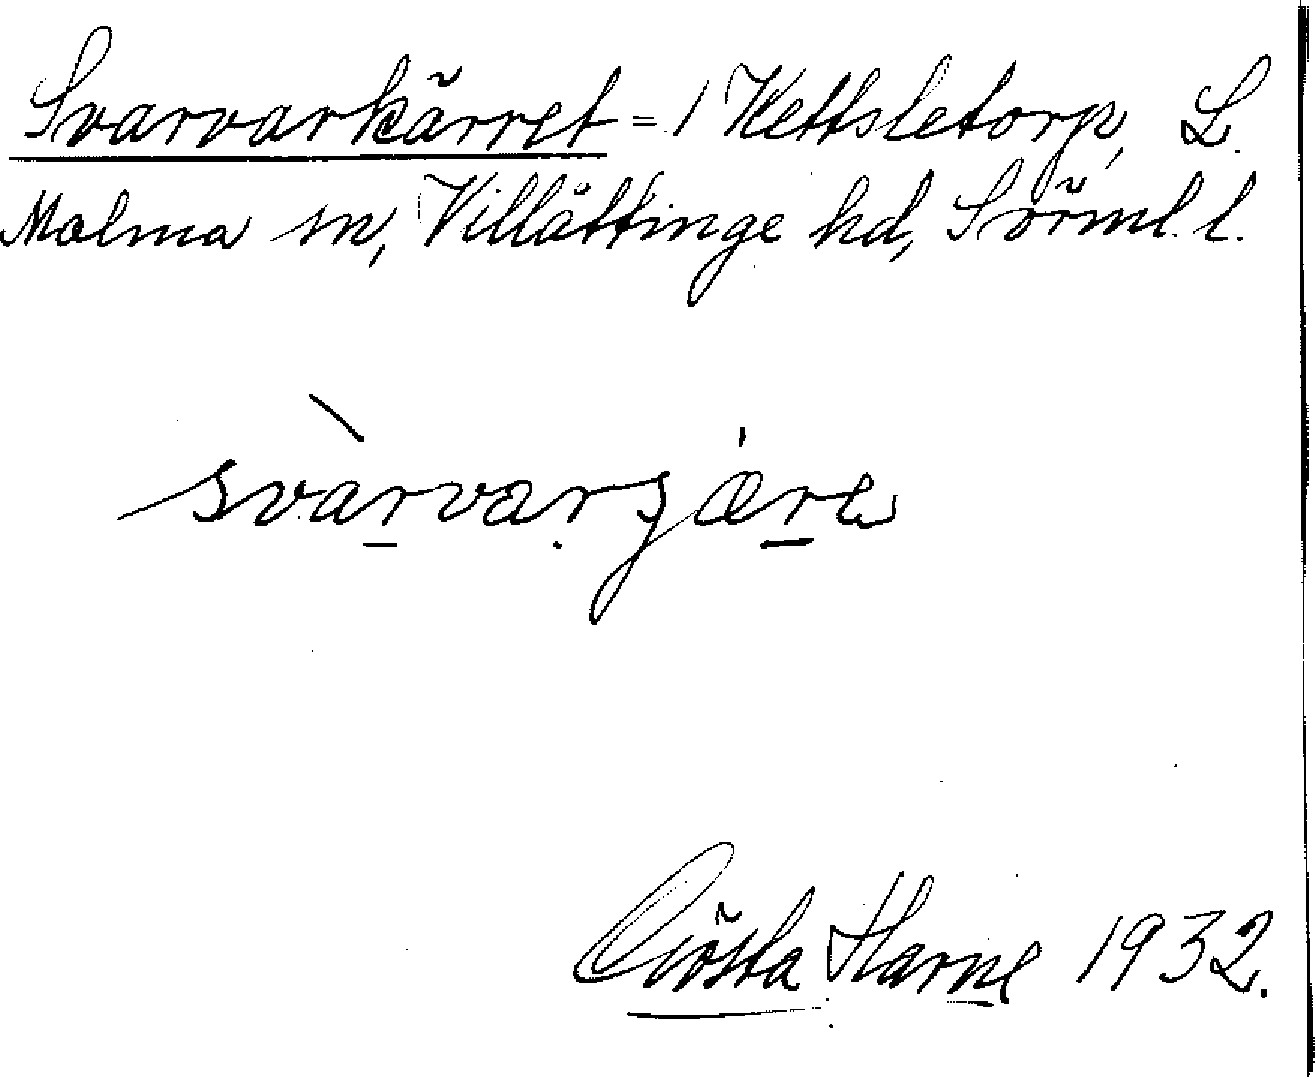 Svarvarkärret = 1 Kettsletorp, L.
Malma sn, Villåttinge hd, Sörml. l.
svàrvarʃæ̀re
Gösta Harne 1932.